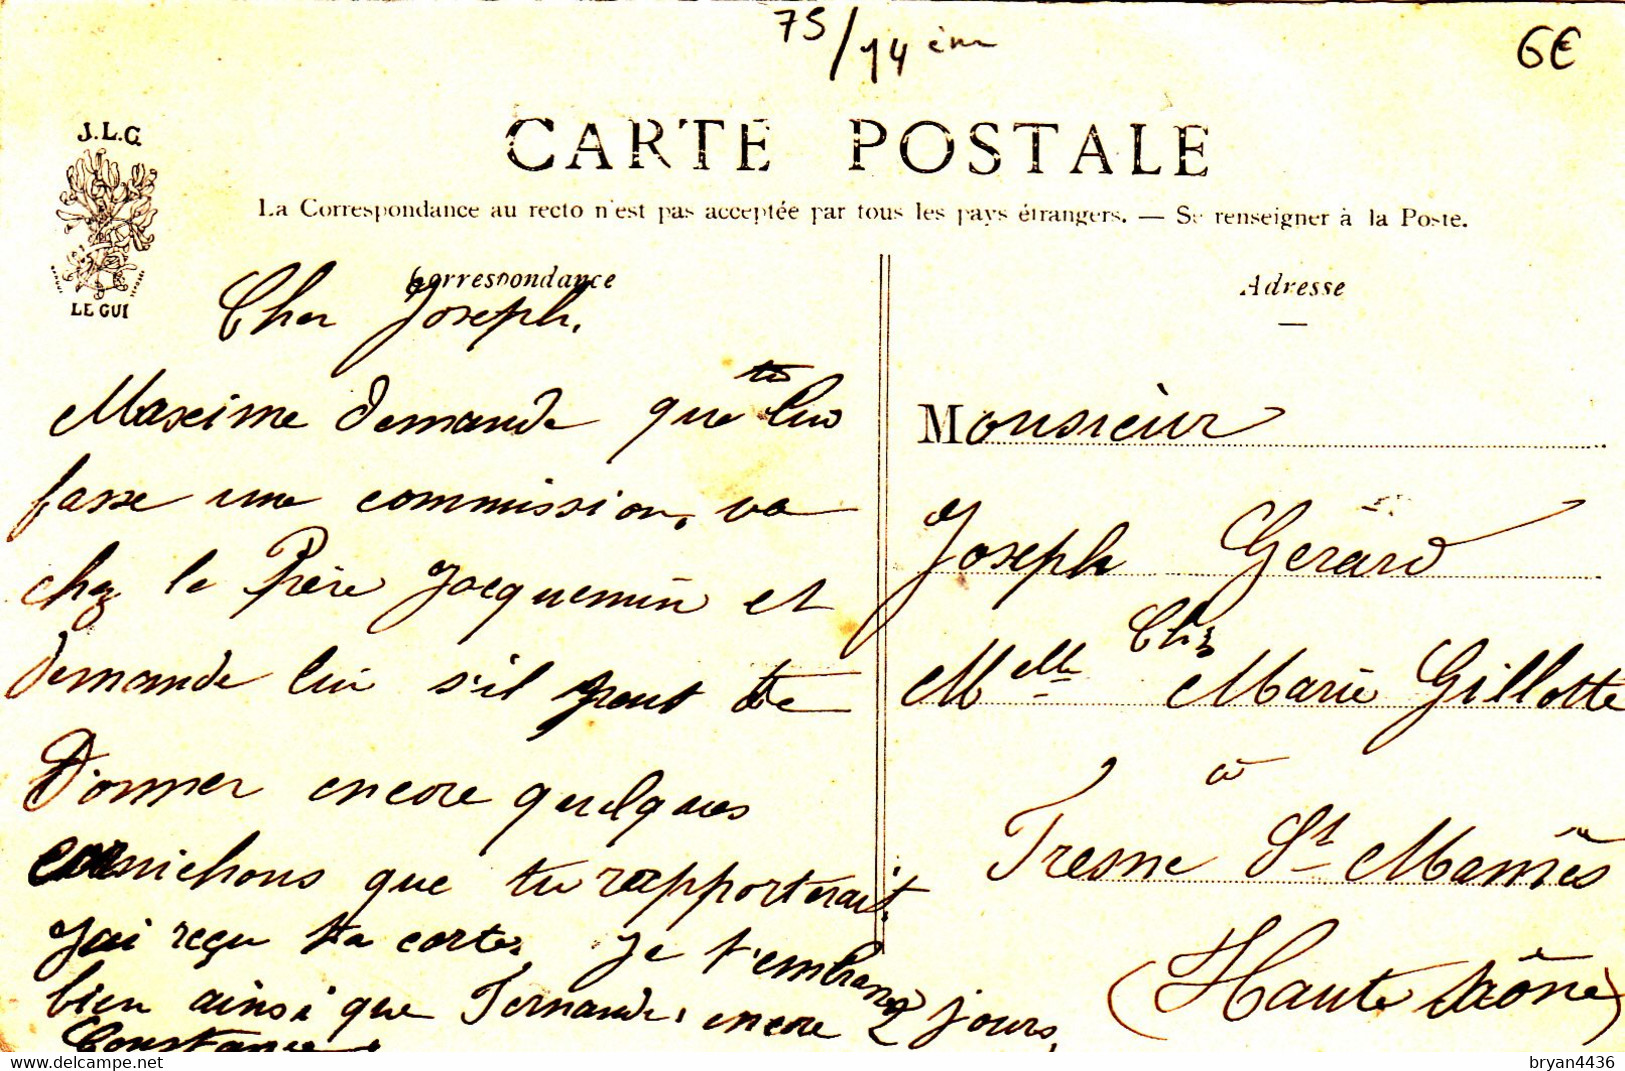 75/14 èm
6€
J.L.C.
LE GUI
CARTE POSTALE
La Correspondance au recto n'est pas acceptée par tous les pays étrangers. — Se renseigner à la Poste.
Correspondance
Cher Joseph,
Maxime demande que tu lui
fasse une commission, va
chez le Père Jacquemin et
demande lui s'il peut te
Donner encore quelques
cornichons que tu rapporterait.
J'ai reçu ta carte, Je t'embrasse
bien ainsi que Fernande, encore 2 jours,
Constance.
Adresse
Monsieur
Joseph Gérard
Chez
Melle Marie Gillotte
à
Fresne St Mamès
(Haute Saône)
bryan4436